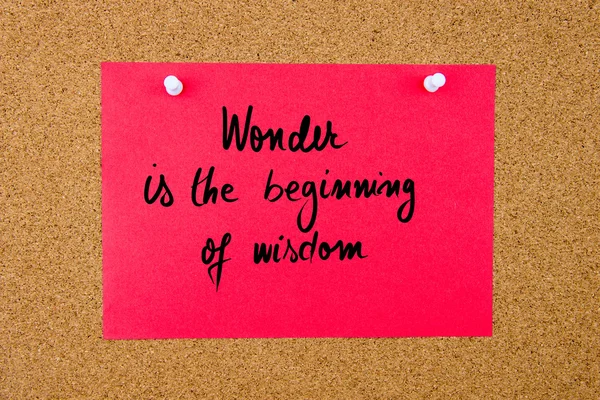 Wonder
is the beginning
of wisdom